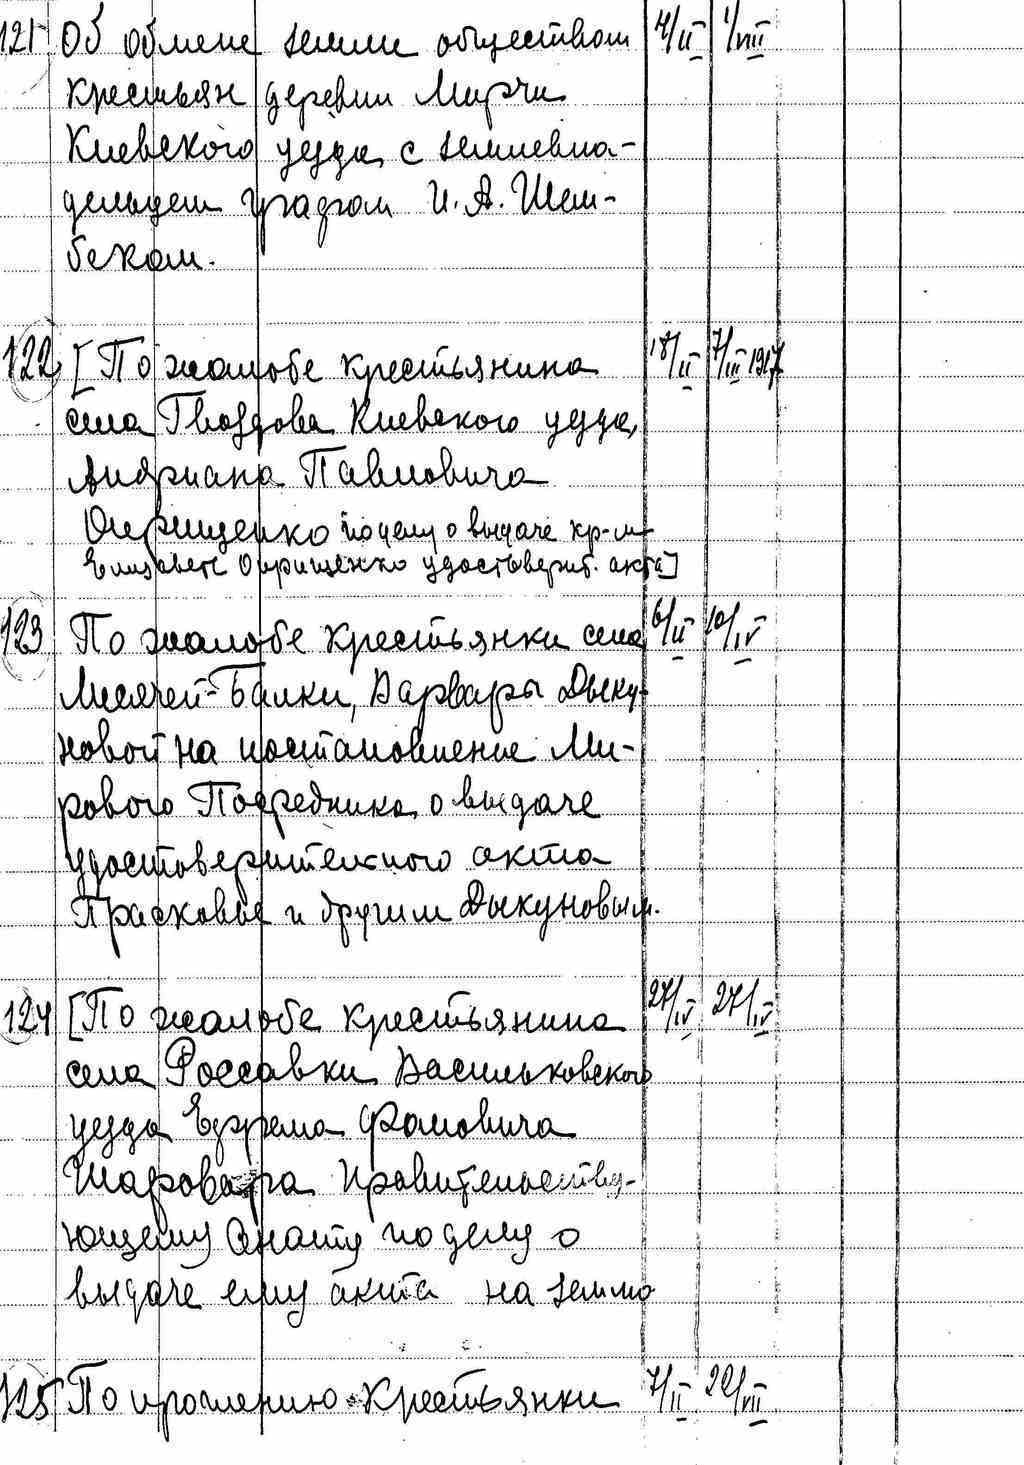 121 Об обмене земли обществом 4/II 1/VIII
крестьян деревни Мирчи
Киевского уезда с землевла-
дельцем графом И. А. Шем-
беком.
122 [По жалобе крестьянина 18/II 7/III 1917
села Гвоздова Киевского уезда,
Андриана Павловича
Онрищенко по делу о выдаче кр-м
Елизавете Онрищенко удостоверит. акта]
123 По жалобе крестьянки села 6/II 10/IV
Лисячей-Балки, Варвары Дыку-
новой на постановление Ми-
рового Посредника о выдаче
удостоверительного акта
Прасковье и другим Дыкуновым.
124 [По жалобе крестьянина 27/IV 27/IV
села Россавки Васильковского
уезда Ефрема Фомовича
Шаровара Правительству-
ющему Сенату по делу о
выдаче ему акта на землю
125 По прошению крестьянки 7/II 22/VII